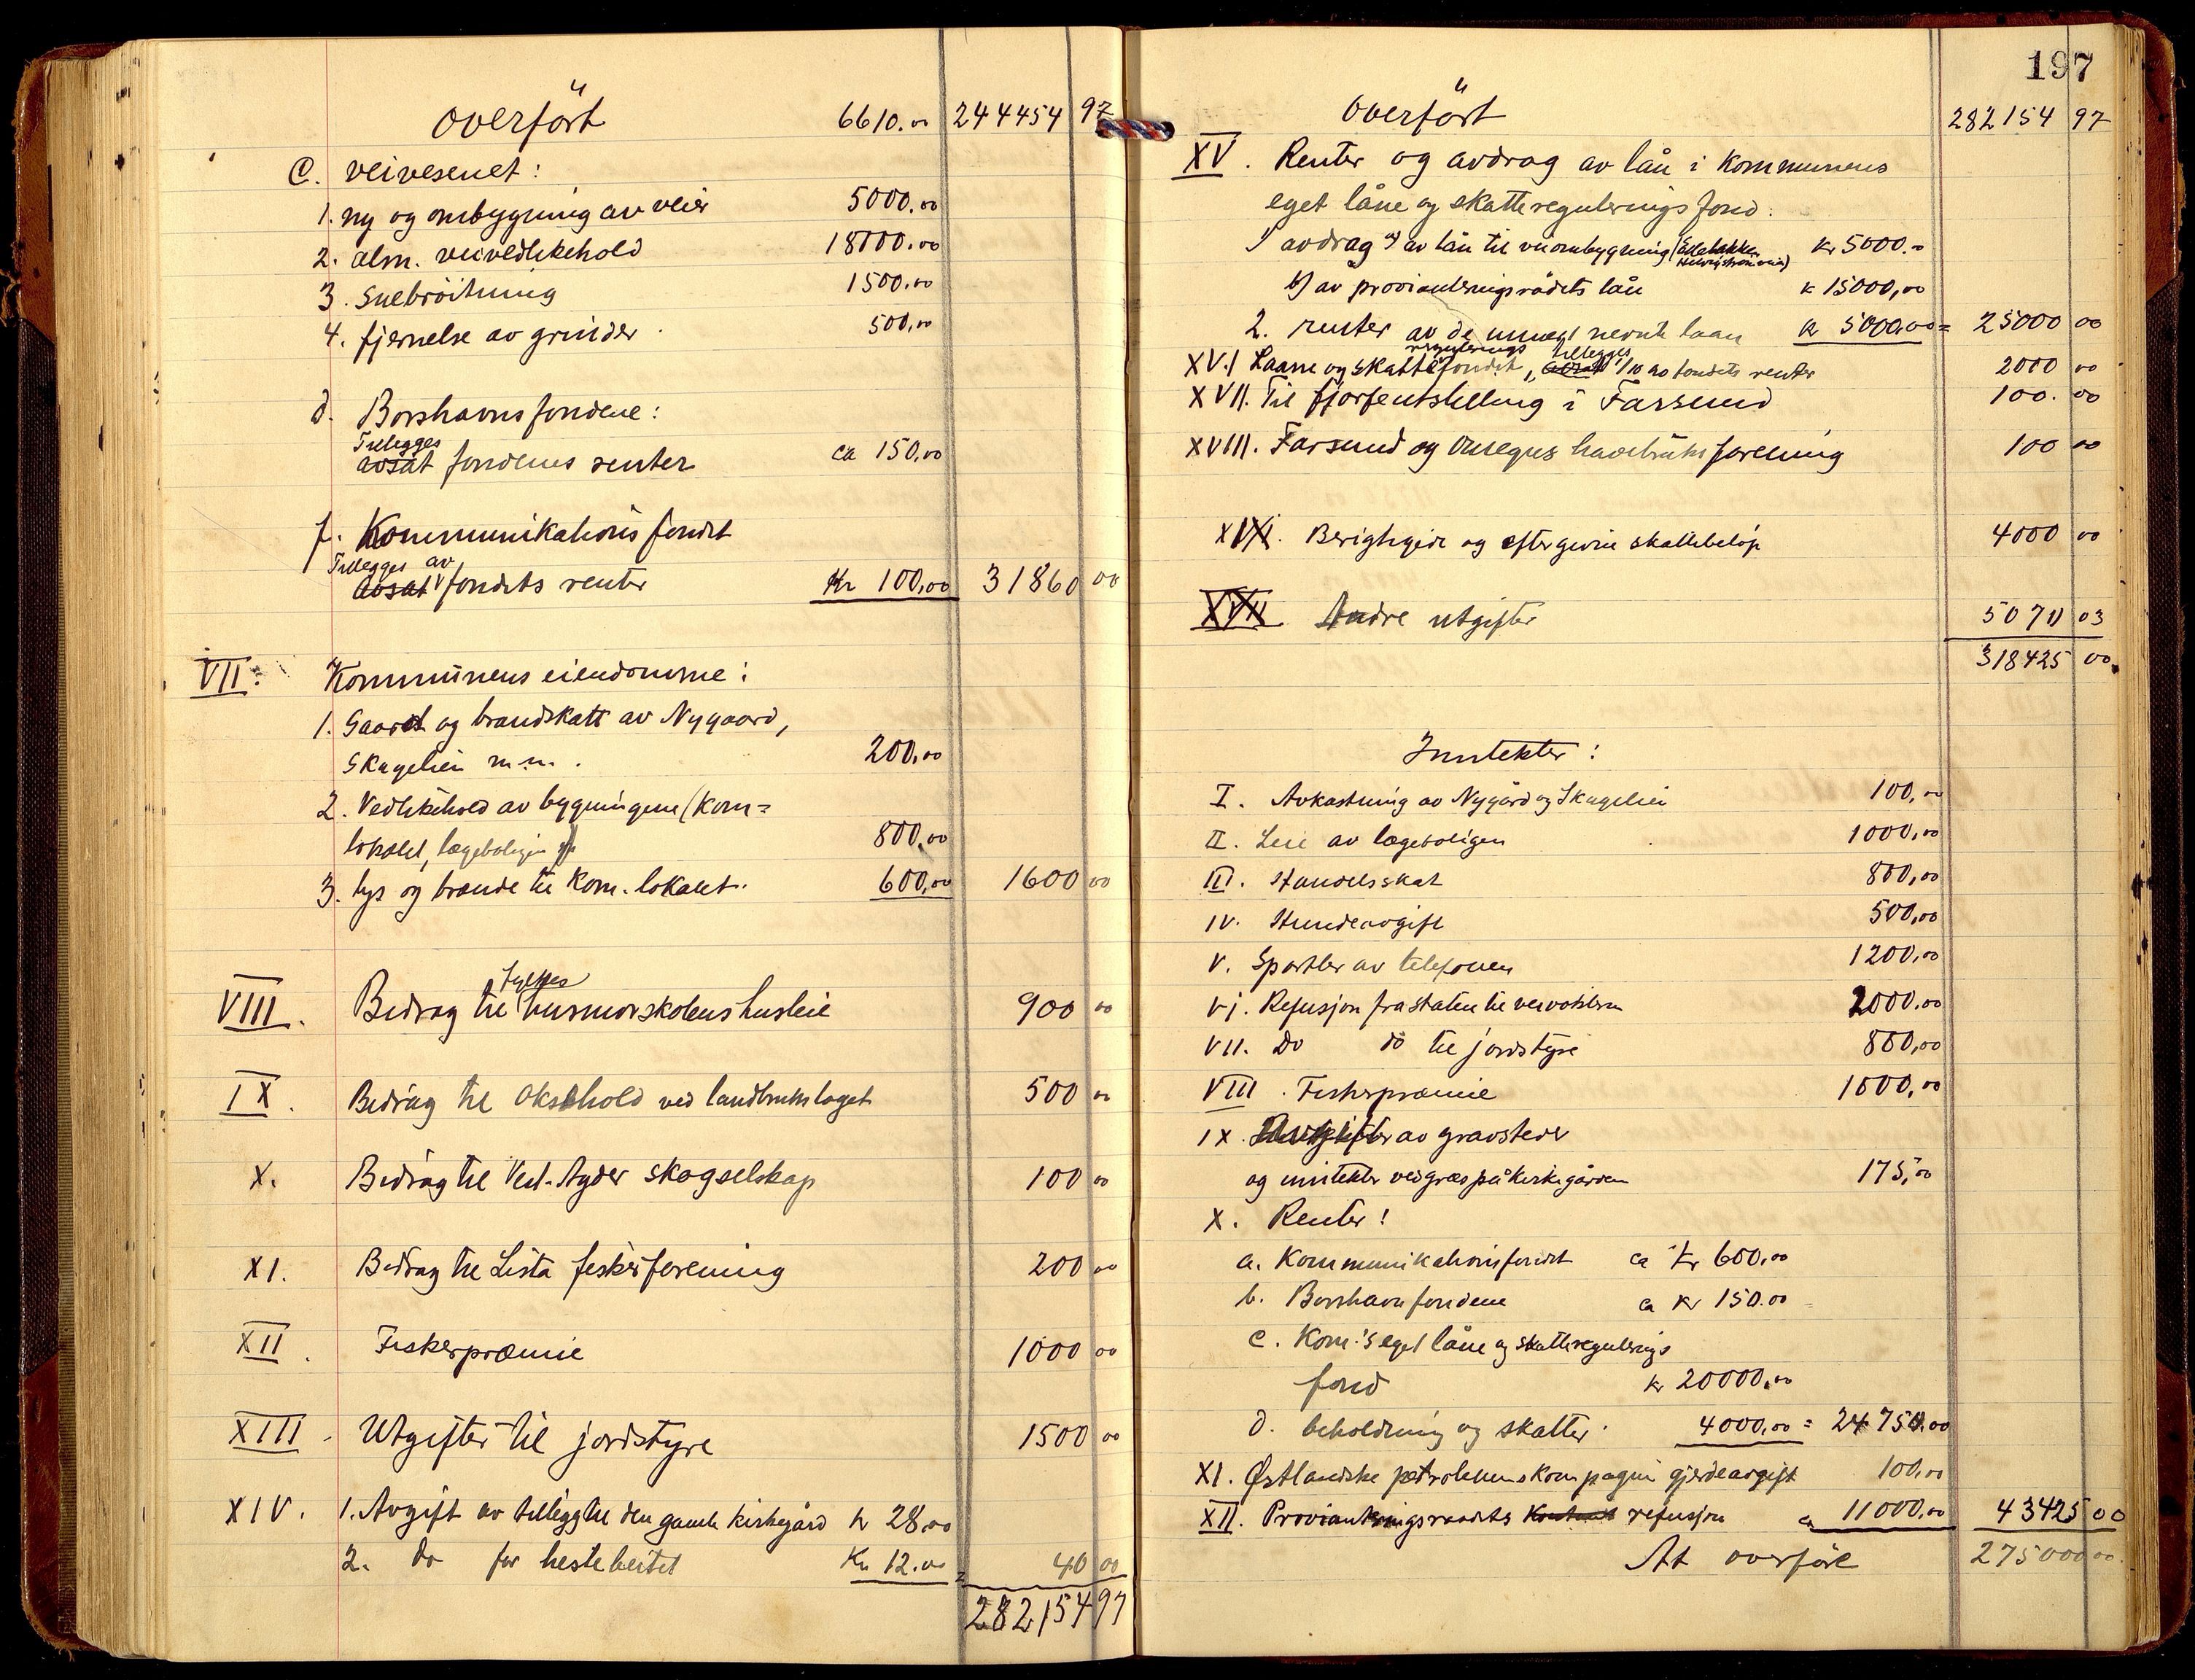 overført 6610.00 244454 97
C. veivesenet:
1. ny og ombygning av veier 5000.00
2. alm. veivedlikehold 18000.00
3. Snebröitning 1500.00
4. fjernelse av grinder. 500,00
d. Borshavnsfondene:
Tillegges
avsat fondenes renter ca 150,00
f. Kommunikationsfondet
Tillegges av
avsat fondets renter Kr 100,00 31860 00
VII. Kommunens eiendomme:
1. Gaards og brandskatt av Nygaard,
Skagelien m.m. 200,00
2. Vedlikehold av bygningene (kom=
lokalet, lægeboligen 800,00
3. lys og brande til kom. lokalet. 600,00 1600 00
VIII. Bidrag til husmorskolens husleie 900 00
IX. Bidrag til oksehold ved landbrukslaget 500 00
X. Bidrag til Vest-Agder skogselskap 100 00
XI. Bidrag til Lista fiskerforening 200 00
XII. Fiskerpræmie 1000 00
XIII. Utgifter til jordstyre 1500 00
XIV. 1. Avgift av tillegg til den gamle kirkegård kr 28,00
2. do for hestebeitet Kr 12.00 = 40 00
282154 97
197
overført 282154 97
XV. Renter og avdrag av lån i kommunens
eget låne og skattereguleringsfond:
1 avdrag a) av lån til veiombygning kr 5000.-
b) av provianteringsrådets lån k 15000,00
2. renter av de nevnte laan kr 5000,00 = 25000 00
regulerings tillegges
XVI Laane og skattefondet, avsat 1/10 av fondets renter 2000 00
XVII. Til fjørfeutstilling i Farsund 100. 00
XVIII. Farsund og Omegns havebruksforening 100 00
XIX. Berigtigede og eftergivne skattebeløp 4000 00
Andre utgifter 5070 03
318425 00
Inntekter:
I. Avkastning av Nygård og Skagelien 100,00
II. Leie av lægeboligen 1000,00
III. Handelsskat 800,00
IV. Hundeavgift 500,00
V. Sportler av telefonen 1200,00
VI. Refusjon fra staten til veivoktern 2000.00
VII. Do do til jordstyre 800,00
VIII. Fiskerpræmie 1000,00
IX. av gravsteder
og inntekter ved græs på kirkegården 175,00
X. Renter!
a. Kommunikationsfondet ca kr 600,00
b. Borshavnfondene ca kr 150.00
c. Kom.'s eget låne og skatteregulerings
fond kr 20000,00
d. beholdning og skatter. 4000,00 = 24750.00
XI. Østlandske petroleumskompagni gjerdeavgift 100,00
XII. Provianteringsraadets refusjon ca 11000,00 43425 00
At overføre 275000 00